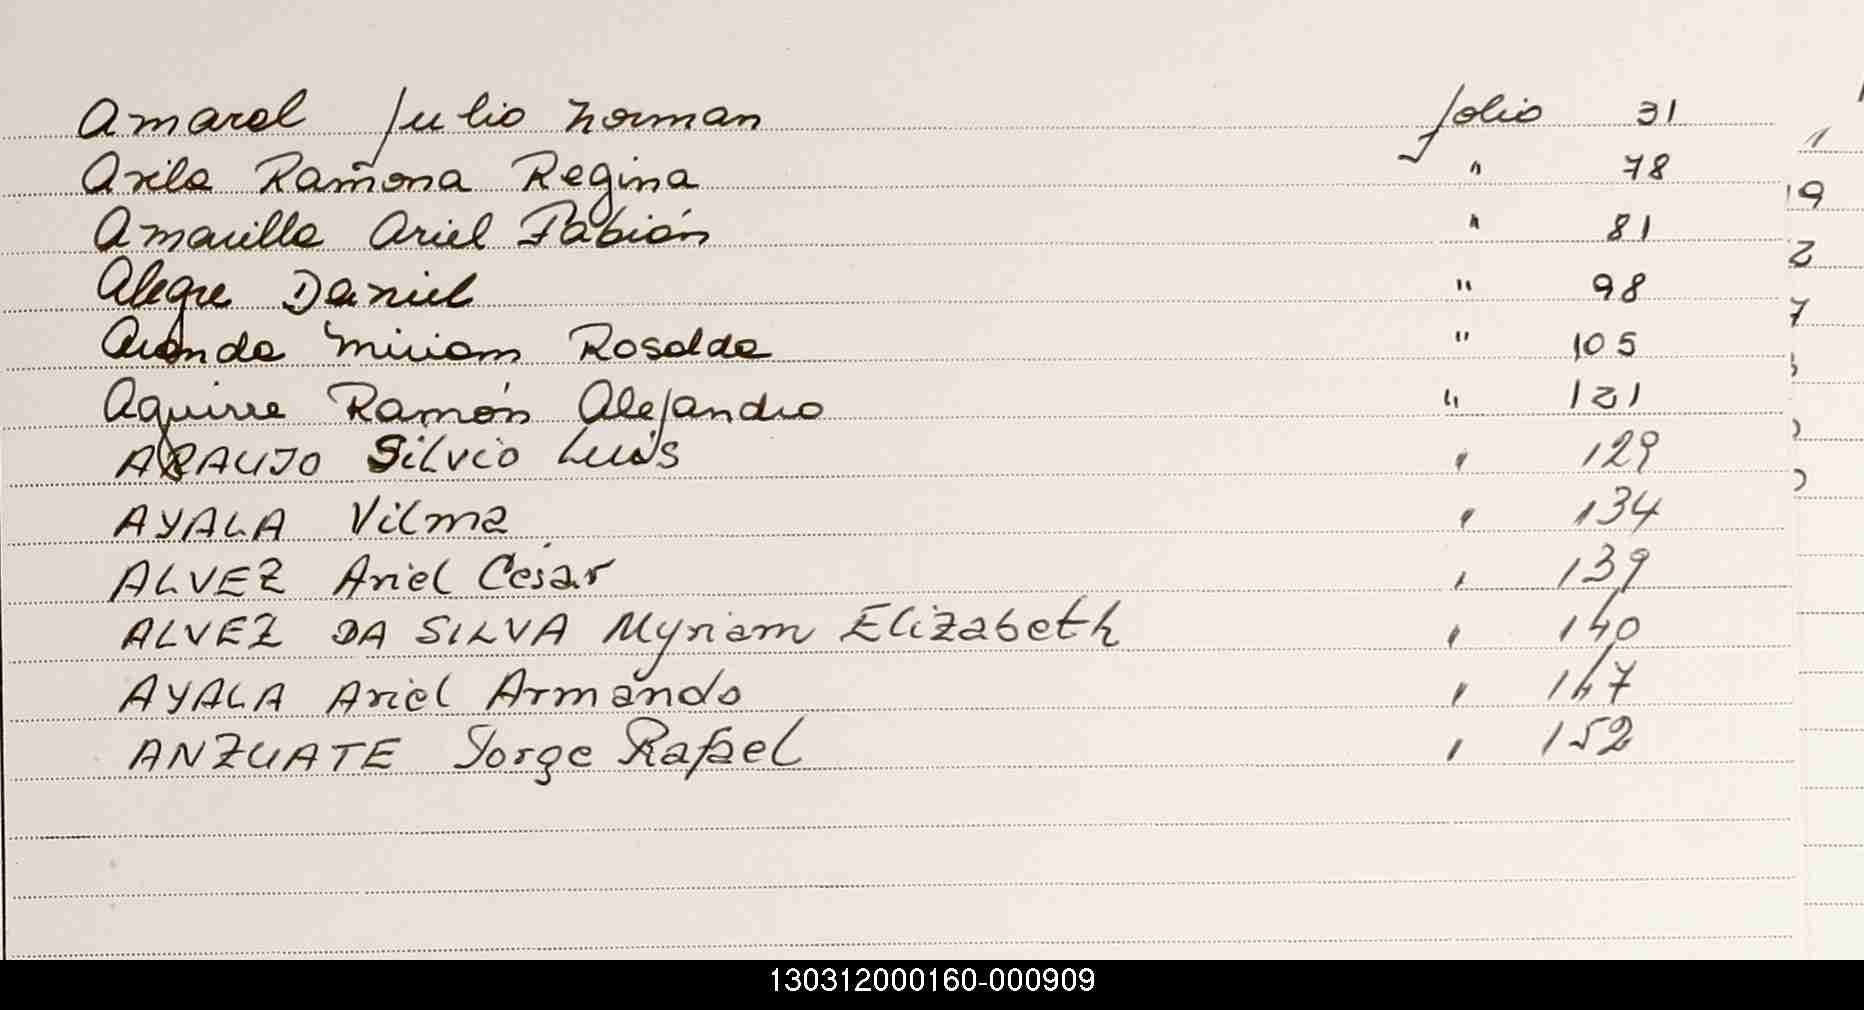 Amaral Julio Norman folio 31
Avila Ramona Regina " 78
Amarilla Ariel Fabián " 81
Alegre Daniel " 98
Aranda Miriam Rosalda " 105
Aguirre Ramón Alejandro " 121
ARAUJO Silvio Luis " 129
AYALA Vilma " 134
ALVEZ Ariel Cesar " 139
ALVEZ DA SILVA Myriam Elizabeth " 140
AYALA Ariel Armando " 147
ANZUATE Jorge Rafael " 152
130312000160-000909